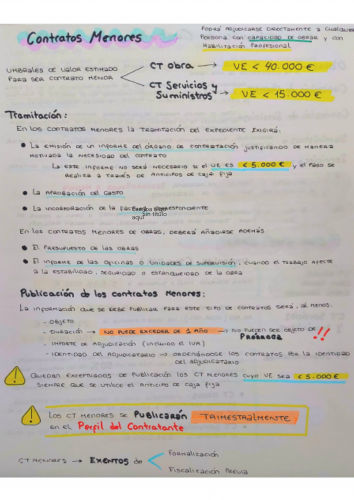 Contratos Menores
PODRÁ ADJUDICARSE DIRECTAMENTE A CUALQUIER
PERSONA CON CAPACIDAD DE OBRAR Y CON
HABILITACIÓN PROFESIONAL
UMBRALES DE VALOR ESTIMADO
PARA SER CONTRATO MENOR
CT obra → VE < 40.000 €
CT Servicios y
Suministros → VE < 15.000 €
Tramitación:
EN LOS CONTRATOS MENORES LA TRAMITACIÓN DEL EXPEDIENTE EXIGIRÁ:
● LA EMISIÓN DE UN INFORME DEL ÓRGANO DE CONTRATACIÓN JUSTIFICANDO DE MANERA
MOTIVADA LA NECESIDAD DEL CONTRATO
LA ESTE INFORME NO SERÁ NECESARIO SI EL VE ES < 5.000 € Y EL PAGO SE
REALIZA A TRAVÉS DE ANTICIPOS DE CAJA FIJA
● LA APROBACIÓN DEL GASTO
● LA INCORPORACIÓN DE LA FACTURA CORRESPONDIENTE
aquí
Sin título
EN LOS CONTRATOS MENORES DE OBRAS, DEBERÁ AÑADIRSE ADEMÁS
● EL PRESUPUESTO DE LAS OBRAS
● EL INFORME DE LAS OFICINAS O UNIDADES DE SUPERVISIÓN, CUANDO EL TRABAJO AFECTE
A LA ESTABILIDAD, SEGURIDAD O ESTANQUEIDAD DE LA OBRA
Publicación de los contratos Menores:
LA INFORMACIÓN QUE SE DEBE PUBLICAR PARA ESTE TIPO DE CONTRATOS SERÁ, AL MENOS:
- OBJETO
- DURACIÓN → NO PUEDE EXCEDER DE 1 AÑO → NO PUEDEN SER OBJETO DE
PRÓRROGA !!
- IMPORTE DE ADJUDICACIÓN (INCLUIDO EL IVA)
- IDENTIDAD DEL ADJUDICATARIO → ORDENÁNDOSE LOS CONTRATOS POR LA IDENTIDAD
DEL ADJUDICATARIO
QUEDAN EXCEPTUADOS DE PUBLICACIÓN LOS CT MENORES CUYO VE SEA < 5.000 €
SIEMPRE QUE SE UTILICE EL ANTICIPO DE CAJA FIJA
LOS CT MENORES SE PUBLICARÁN TRIMESTRALMENTE
EN EL Perfil del Contratante
CT MENORES → EXENTOS de
Formalización
Fiscalización Previa